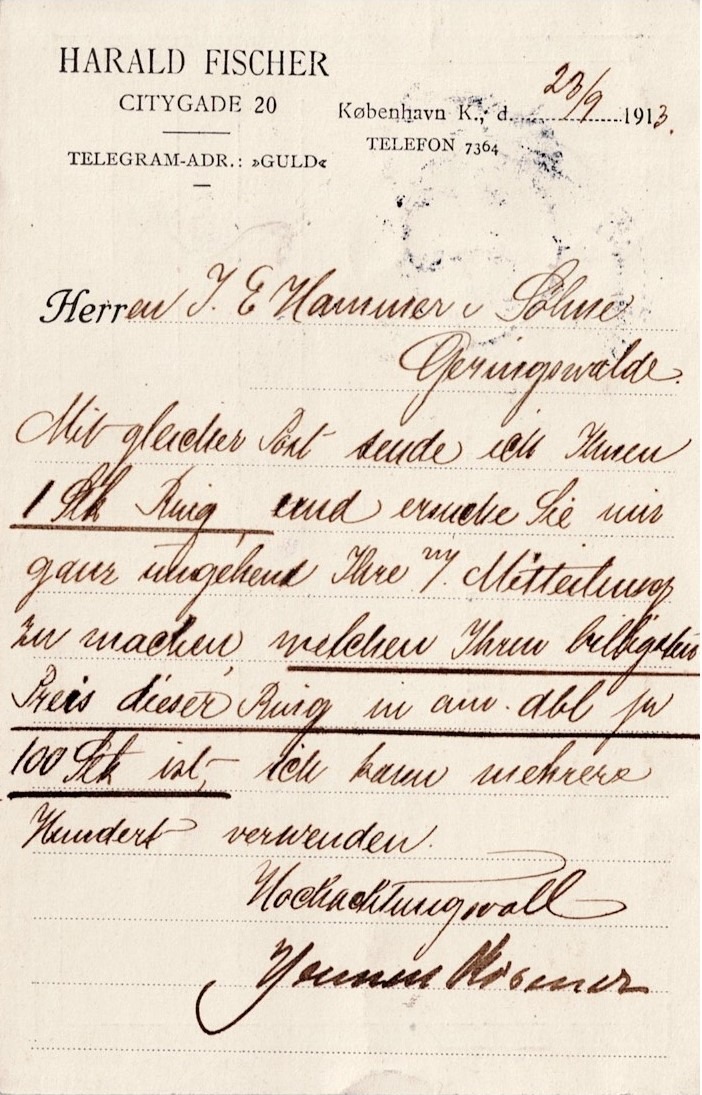 HARALD FISCHER
CITYGADE 20
København K., d. 23/9 1913.
TELEFON 7364
TELEGRAM-ADR.: »GULD«
Herren J. E Hammer u Söhne
Geringswalde.
Mit gleicher Post sende ich Ihnen
1 Stk Ring, und ersuche Sie mir
ganz umgehend Ihre Mitteilung
zu machen, welchen Ihren billigsten
Preis dieser Ring in am. dbl pr
100 Stk ist, ich kann mehrere
Hundert verwenden.
Hochachtungsvoll